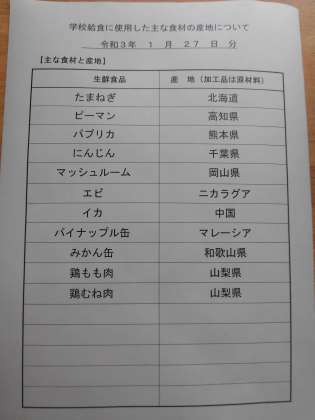 学校給食に使用した主な食材の産地について
令和3年 1 月 27 日 分
【主な食材と産地】
生鮮食品 産 地（加工品は原材料）
たまねぎ 北海道
ピーマン 高知県
パプリカ 熊本県
にんじん 千葉県
マッシュルーム 岡山県
エビ ニカラグア
イカ 中国
パイナップル缶 マレーシア
みかん缶 和歌山県
鶏もも肉 山梨県
鶏むね肉 山梨県